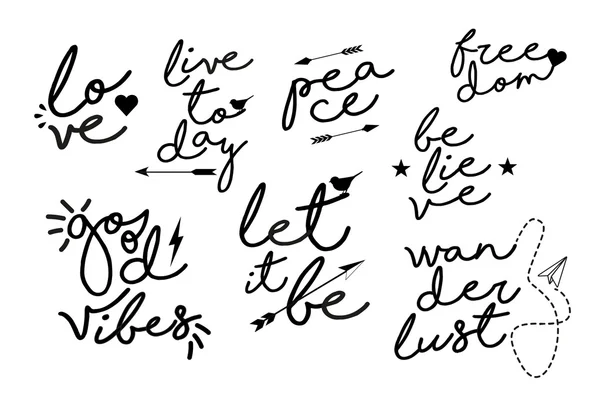 lo
ve
live
to
day
pea
ce
free
dom
be
lie
ve
goo
d
vibes
let
it
be
wan
der
lust